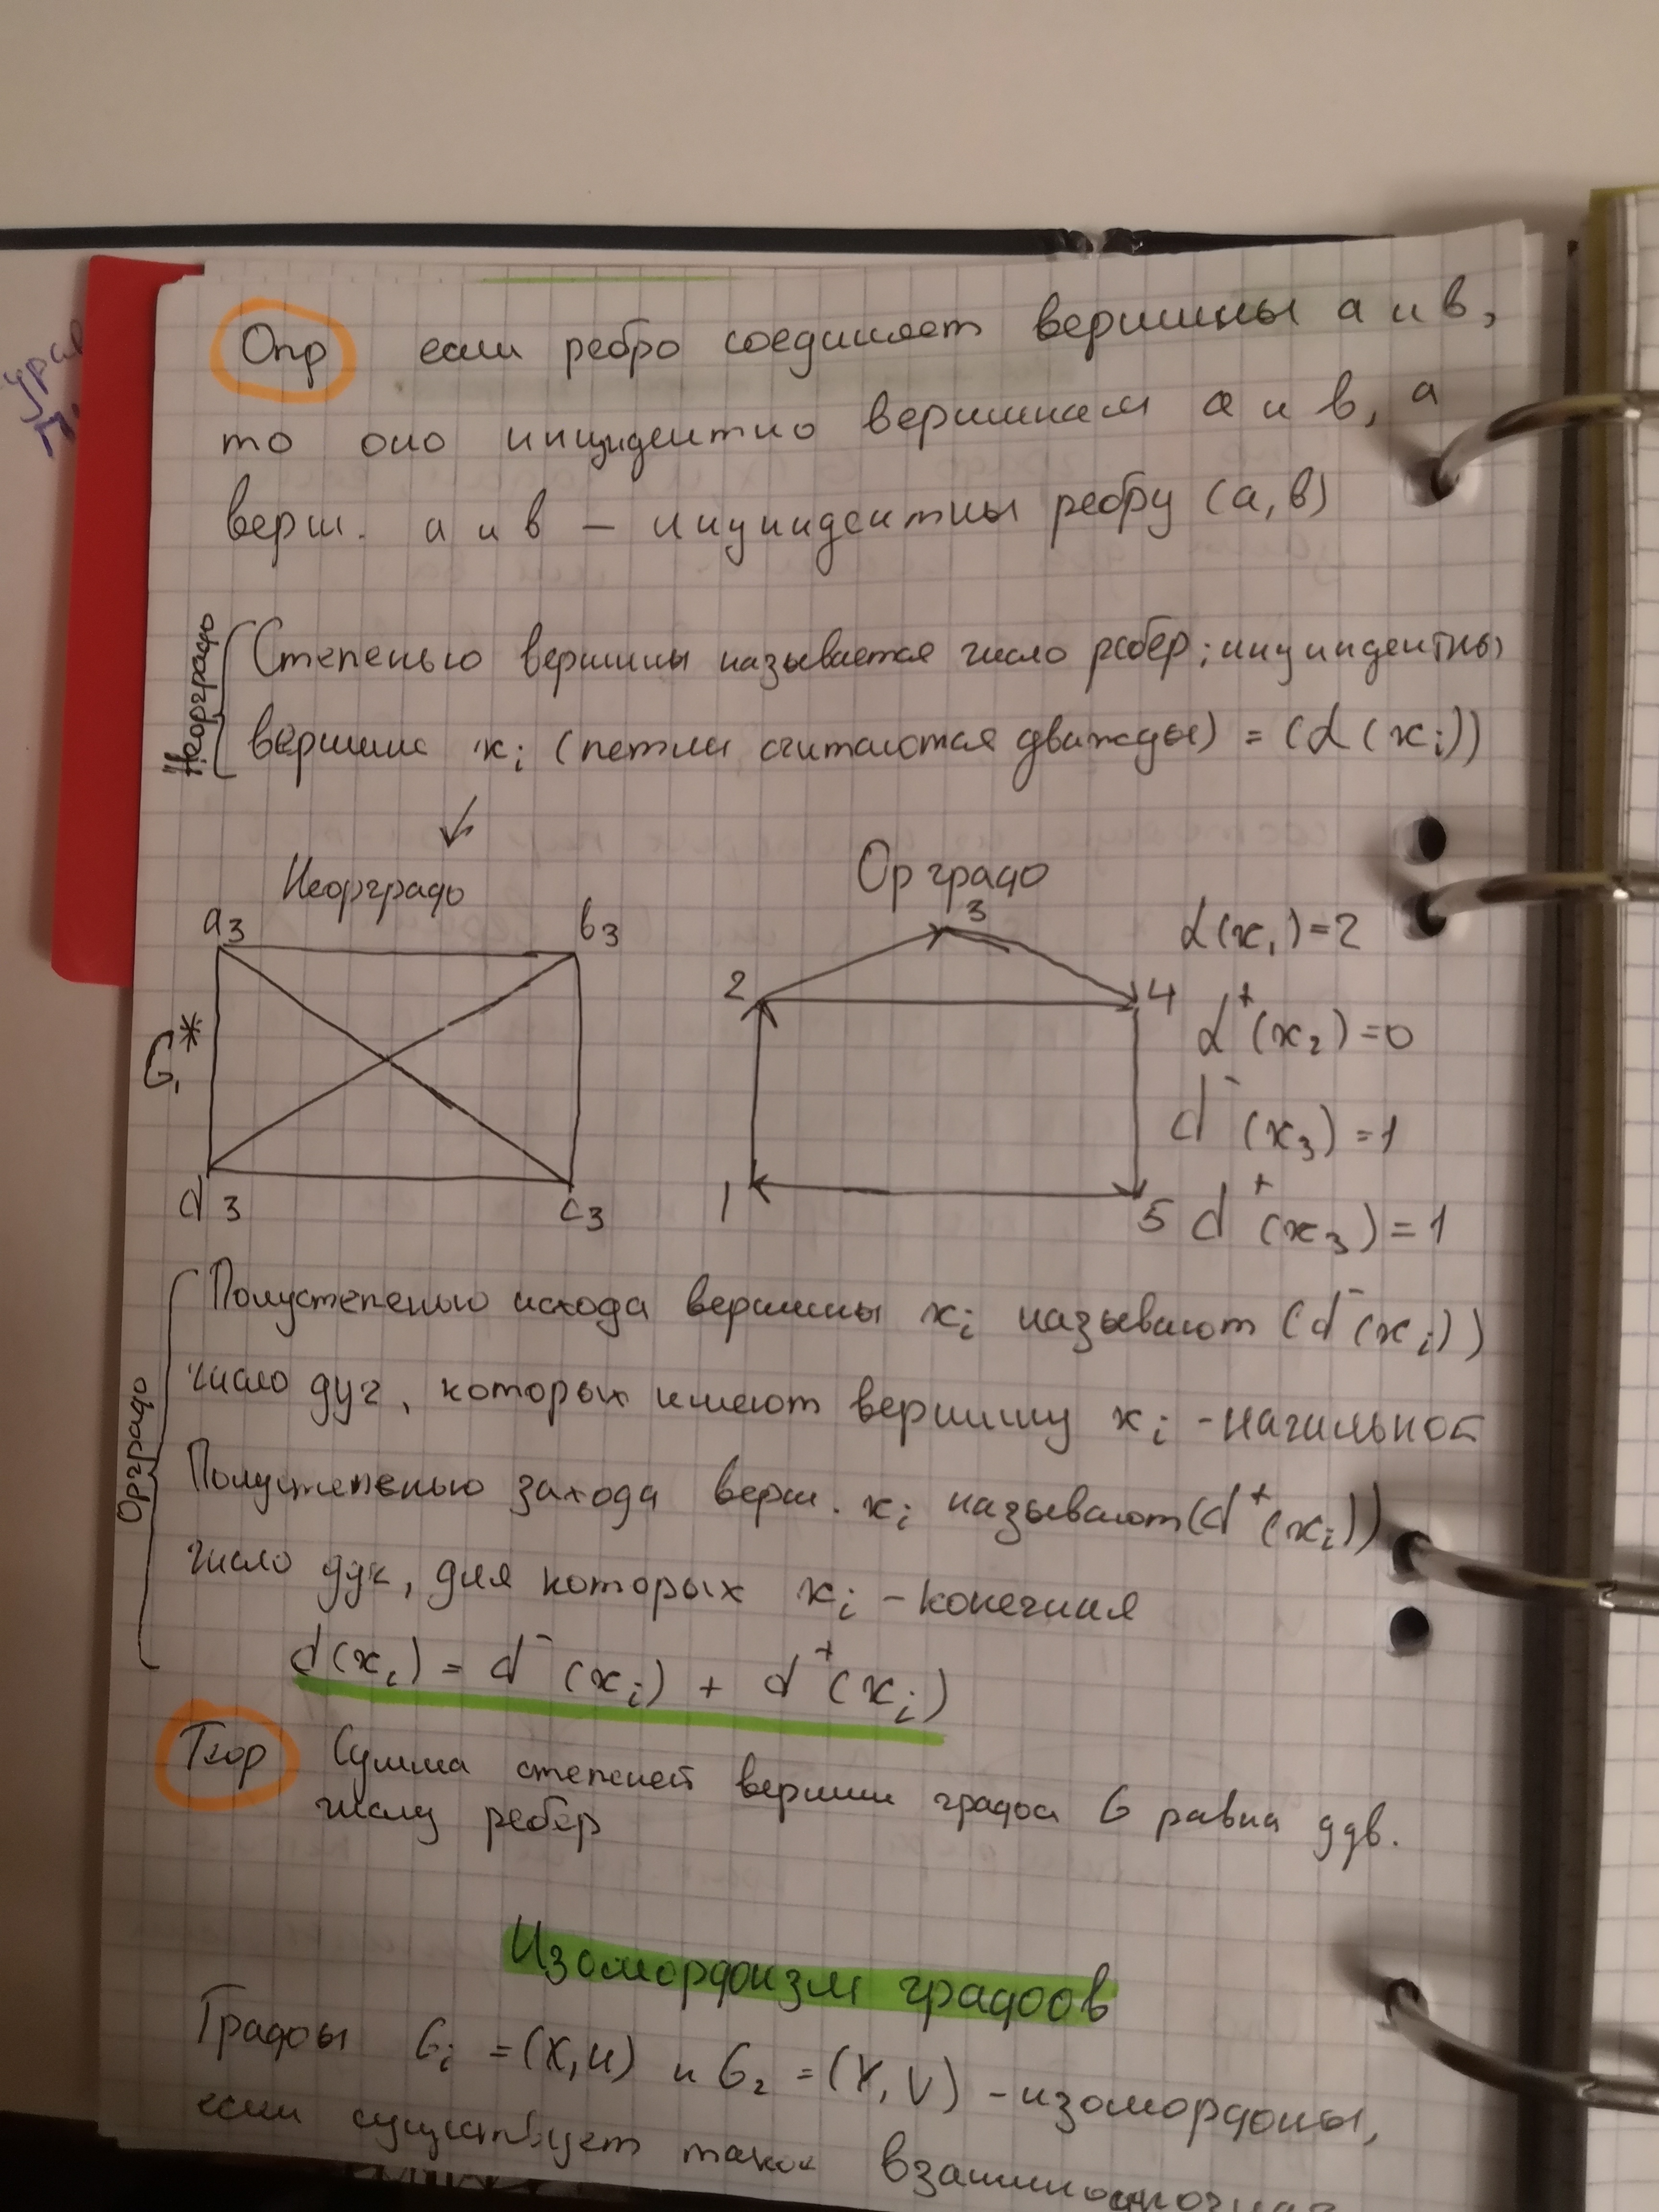 Опр если ребро соединяет вершины a и b,
то оно инцидентно вершинам a и b, а
верш. a и b – инцидентны ребру (a, b)
Неорграф
Степенью вершины называется число ребер; инциндентны
вершине xᵢ (петли считаются дважды) = (d(xᵢ))
Неорграф
Орграф
a3 b3
G₁*
d3 c3
3
2 4
1 5
d(x₁)=2
d⁺(x₂)=0
d⁻(x₃)=1
d⁺(x₃)=1
Орграф
Полустепенью исхода вершины xᵢ называют (d⁻(xᵢ))
число дуг, которых имеют вершину xᵢ - начальной
Полустепенью захода верш. xᵢ называют (d⁺(xᵢ))
число дук, для которых xᵢ – конечная
d(xᵢ) = d⁻(xᵢ) + d⁺(xᵢ)
Теор Сумма степеней вершин графа G равна удв.
числу ребер
Изоморфизм графов
Графы Gᵢ = (X, U) и G₂ = (Y, V) – изоморфны,
если существует такое